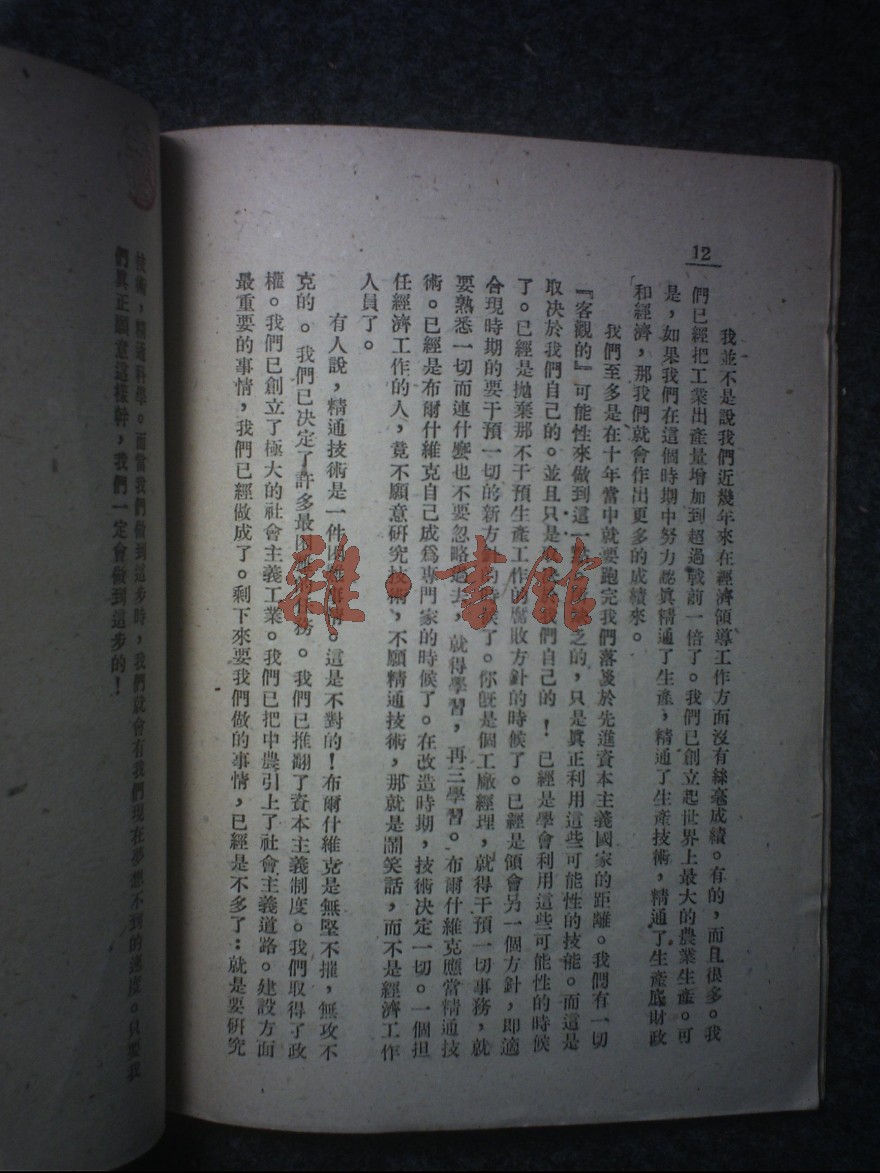 12
我並不是說我們近幾年來在經濟領導工作方面沒有絲毫成績。有的，而且很多。我
們已經把工業出產量增加到超過戰前一倍了。我們已創立起世界上最大的農業生產。可
是，如果我們在這個時期中努力認眞精通了生產，精通了生產技術，精通了生產底財政
和經濟，那我們就會作出更多的成績來。
我們至多是在十年當中就要跑完我們落後於先進資本主義國家的距離。我們有一切
『客觀的』可能性來做到這一點。之的，只是眞正利用這些可能性的技能。而這是
取决於我們自己的。並且只是我們自己的！已經是學會利用這些可能性的時候
了。已經是拋棄那不干預生產工作的腐敗方針的時候了。已經是領會另一個方針，即適
合現時期的要干預一切的新方針的時候了。你旣是個工廠經理，就得干預一切事務，就
要熟悉一切而連什麼也不要忽略過去，就得學習，再三學習。布爾什維克應當精通技
術。已經是布爾什維克自己成爲專門家的時候了。在改造時期，技術决定一切。一個担
任經濟工作的人，竟不願意硏究技術，不願精通技術，那就是鬧笑話，而不是經濟工作
人員了。
有人說，精通技術是一件困難事情。這是不對的！布爾什維克是無堅不摧，無攻不
克的。我們已决定了許多最困難的任務。我們已推翻了資本主義制度。我們取得了政
權。我們已創立了極大的社會主義工業。我們已把中農引上了社會主義道路。建設方面
最重要的事情，我們已經做成了。剩下來要我們做的事情，已經是不多了：就是要硏究
技術，精通科學。而當我們做到這步時，我們就會有我們現在夢想不到的速度。只要我
們眞正願意這樣幹，我們一定會做到這步的！
雜·書館